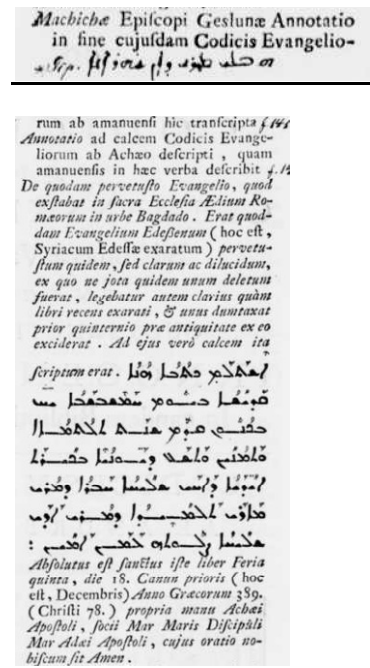 Machichæ Epiſcopi Geslunæ Annotatio
in fine cujuſdam Codicis Evangelio-
rum ab amanuenſi hic tranſcripta
Annotatio ad calcem Codicis Evange-
liorum ab Achæo deſcripti , quam
amanuenſis in hæc verba deſcribit
De quodam pervetuſto Evangelio, quod
exſtabat in ſacra Eccleſia Ædium Ro-
mæorum in urbe Bagdado . Erat quod-
dam Evangelium Edeſſenum ( hoc eſt ,
Syriacum Edeſſæ exaratum ) pervetu-
ſtum quidem , ſed clarum ac dilucidum,
ex quo ne jota quidem unum deletum
fuerat , legebatur autem clarius quàm
libri recens exarati , & unus dumtaxat
prior quinternio præ antiquitate ex eo
exciderat . Ad ejus verò calcem ita
ſcriptum erat . ܐܫܬܠܡ ܟܬܒܐ ܗܢܐ
ܩܕܝܫܐ ܒܝܘܡ ܚܡܫܒܫܒܐ ܝܚ
ܒܟܢܘܢ ܩܕܡ ܫܢܬ ܬܠܬܡܐܐ
ܘܬܡܢܝܢ ܘܬܫܥ ܕܝܘܢܝܐ
ܫܠܝܚܐ ܚܒܪܗ ܕܡܪܝ
ܡܐܪܝ ܬܠܡܝܕܗ ܕܡܪܝ ܐܕܝ
ܫܠܝܚܐ ܨܠܘܬܗ ܥܡܢ ܐܡܝܢ :
Abſolutus eſt ſanctus iſte liber Feria
quinta , die 18. Canun prioris ( hoc
eſt , Decembris) Anno Græcorum 389.
(Chriſti 78. ) propria manu Achæi
Apoſtoli , ſocii Mar Maris Diſcipuli
Mar Adæi Apoſtoli , cujus oratio no-
biſcum ſit Amen .